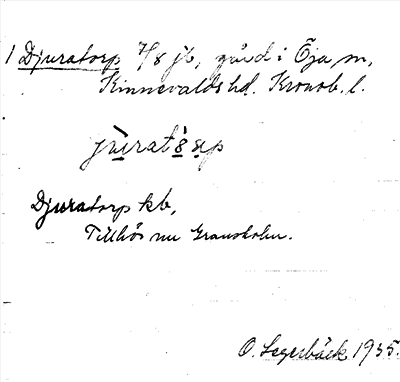 1 Djuratorp 7/8 jb, gård i Öja sn,
Kinnevalds hd. Kronob. l.
Djuratorp kb,
Tillhör nu Gransholm.
O. Segerbäck 1935.